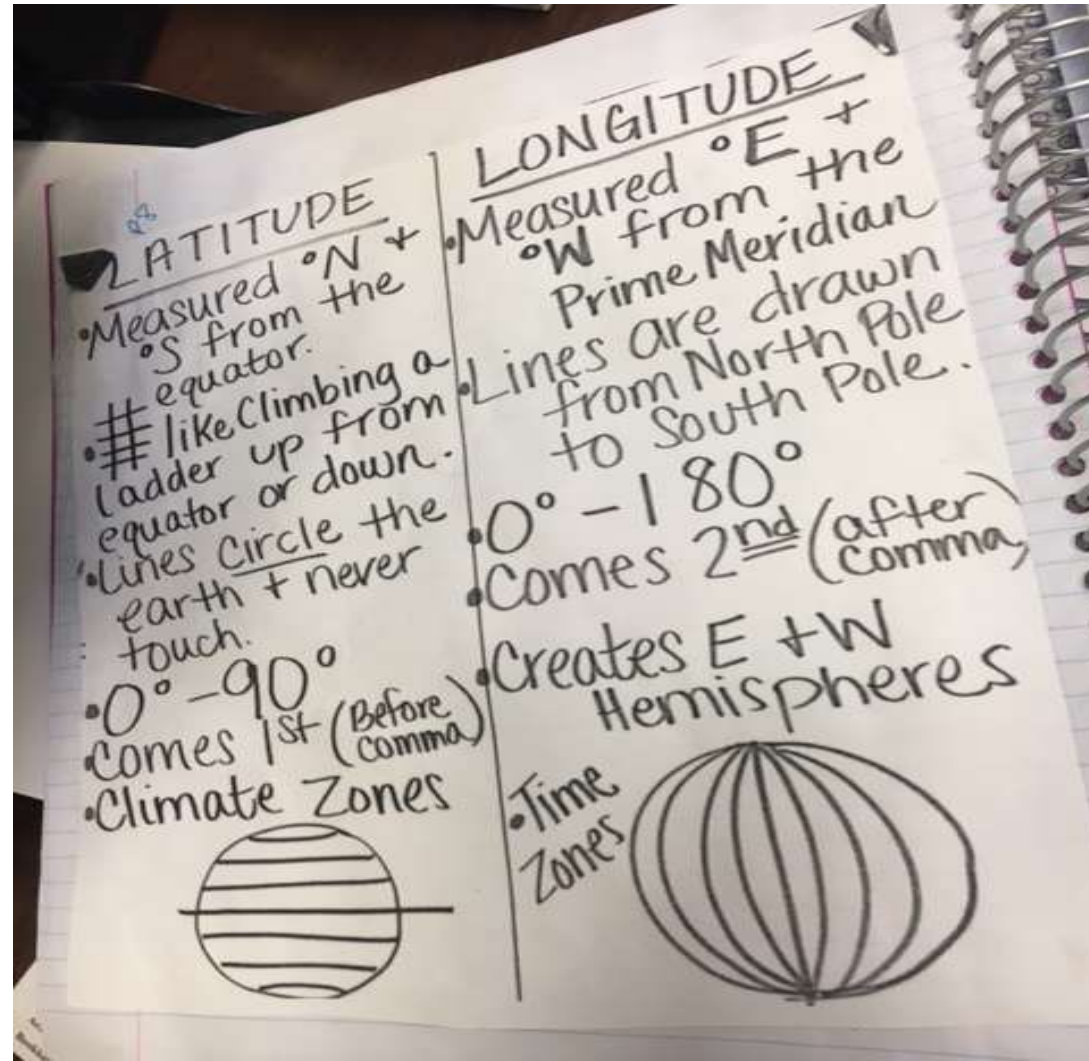 LATITUDE
•Measured °N +
°S from the
equator.
•like Climbing a
ladder up from
equator or down.
•Lines circle the
earth + never
touch.
•0°-90°
•Comes 1st (Before
comma)
•Climate Zones
LONGITUDE
•Measured °E +
°W from the
Prime Meridian
•Lines are drawn
from North Pole
to South Pole.
•0°-180°
•Comes 2nd (after
comma)
•Creates E + W
Hemispheres
•Time
Zones